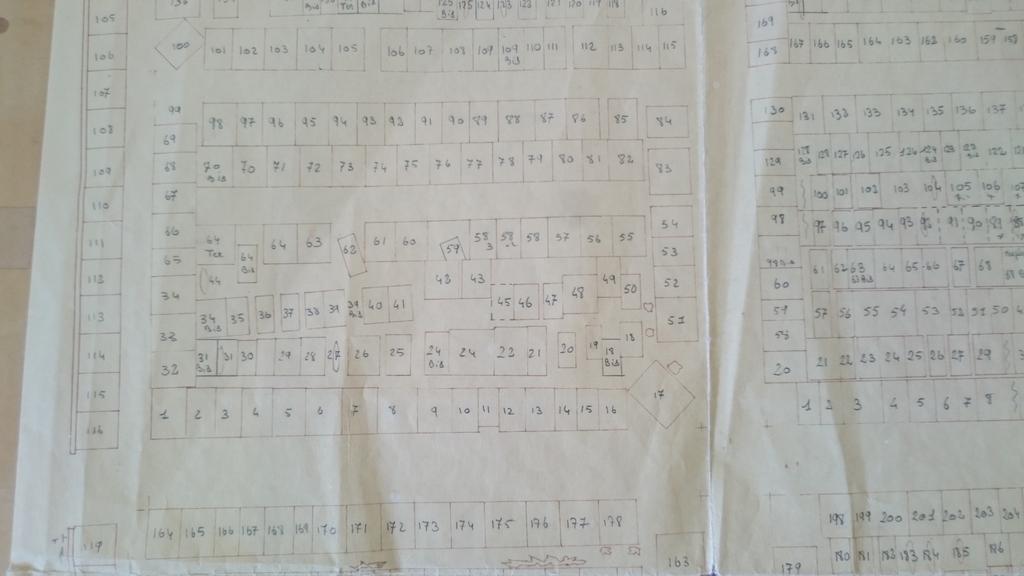 105
106
107
108
109
110
111
112
113
114
115
116
119
116
100 101 102 103 104 105 106 107 108 109 109 Bis 110 111 112 113 114 115
99 98 97 96 95 94 93 92 91 90 89 88 87 86 85 84
69
68 70 Bis 70 71 72 73 74 75 76 77 78 79 80 81 82 83
67
66 64 Ter 64 Bis 64 63 62 61 60 59 58 3 58 Bis 58 57 56 55 54
65 53
44 43 43 49 52
34 34 Bis 35 36 37 38 39 39 Bis 40 41 45 46 47 48 50 51
33
32 31 Bis 31 30 29 28 27 26 25 24 Bis 24 22 21 20 19 18 Bis 18
1 2 3 4 5 6 7 8 9 10 11 12 13 14 15 16 17
164 165 166 167 168 169 170 171 172 173 174 175 176 177 178 163
169
168 167 166 165 164 163 162 160 159 158
130 131 132 133 134 135 136 137
129 128 Bis 128 127 126 125 124 124 Bis 123 123 Bis 122
99 100 101 102 103 104 105 106
98 97 96 95 94 93 92 91 90 89
60 61 62 63 63 Bis 64 65 66 67 68
59 57 56 55 54 53 52 51 50
58
20 21 22 23 24 25 26 27 29
1 2 3 4 5 6 7 8
198 199 200 201 202 203 204
179 180 181 182 183 184 185 186